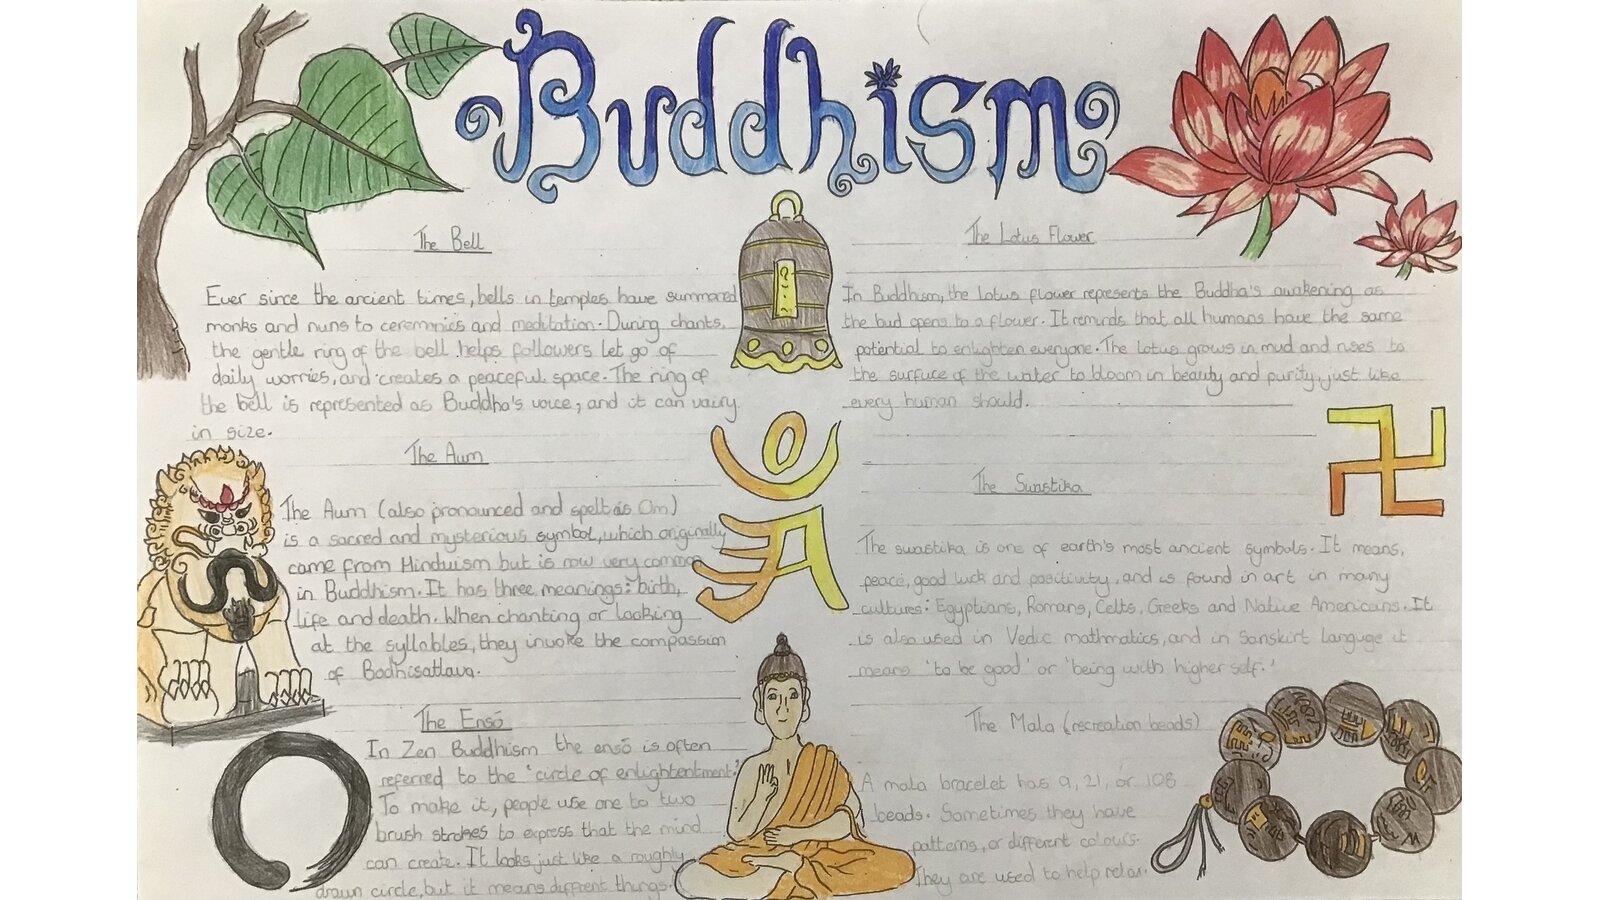 Buddhism
The Bell
Ever since the ancient times, bells in temples have summoned
monks and nuns to ceremonies and meditation. During chants,
the gentle ring of the bell helps followers let go of
daily worries, and creates a peaceful space. The ring of
the bell is represented as Buddha's voice, and it can vairy
in size.
The Aum
The Aum (also pronounced and spelt as Om)
is a sacred and mysterious symbol, which originally
came from Hinduism but is now very common
in Buddhism. It has three meanings: birth,
life and death. When chanting or looking
at the syllables, they invoke the compassion
of Bodhisattava.
The Ensō
In Zen Buddhism the ensō is often
referred to the 'circle of enlightentment.'
To make it, people use one to two
brush strokes to express that the mind
can create. It looks just like a roughly
drawn circle, but it means different things.
The Lotus Flower
In Buddhism, the lotus flower represents the Buddha's awakening as
the bud opens to a flower. It reminds that all humans have the same
potential to enlighten everyone. The lotus grows in mud and rises to
the surface of the water to bloom in beauty and purity, just like
every human should.
The Swastika
The swastika is one of earth's most ancient symbols. It means,
peace, good luck and positivity, and is found in art in many
cultures: Egyptians, Romans, Celts, Greeks and Native Americans. It
is also used in Vedic mathmatics, and in Sanskirt languge it
means 'to be good' or 'being with higher self.'
The Mala (recreation beads)
A mala bracelet has 9, 21, or 108
beads. Sometimes they have
patterns, or different colours.
They are used to help relax.